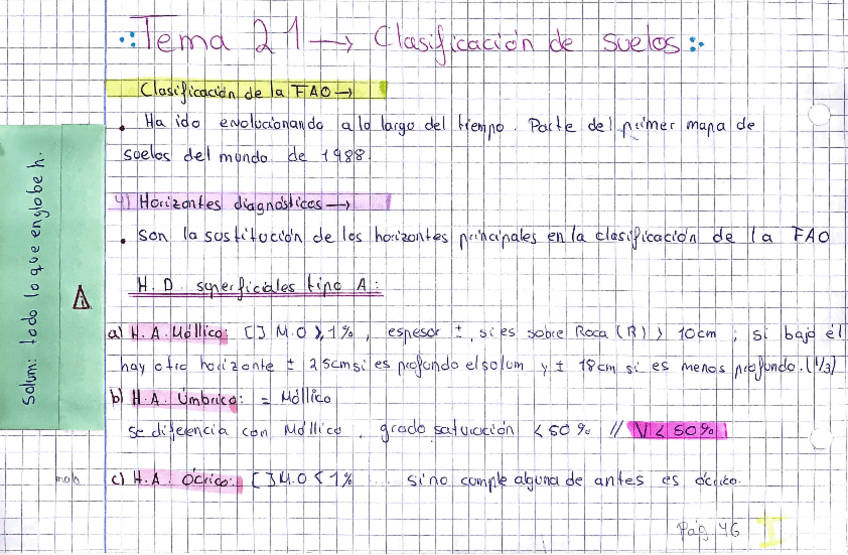 Tema 21 → Clasificación de suelos
Clasificación de la FAO →
• Ha ido evolucionando a lo largo del tiempo. Parte del primer mapa de
suelos del mundo de 1988.
4) Horizontes diagnósticos →
• Son la sustitución de los horizontes principales en la clasificación de la FAO
H. D. superficiales tipo A:
a) H. A. Móllico: [] M.O ≥ 1%, espesor ±, si es sobre Roca (R) > 10cm ; si bajo él
hay otro horizonte ± 25cm si es profundo el solum y ± 18cm si es menos profundo. (1/3)
b) H. A. Úmbrico: = Móllico
se diferencia con Móllico. grado saturación < 50% // V < 50%
c) H. A. Ócrico: [] M.O < 1% ... si no cumple alguna de antes es ócrico.
Solum: todo lo que englobe h.
Pág 46